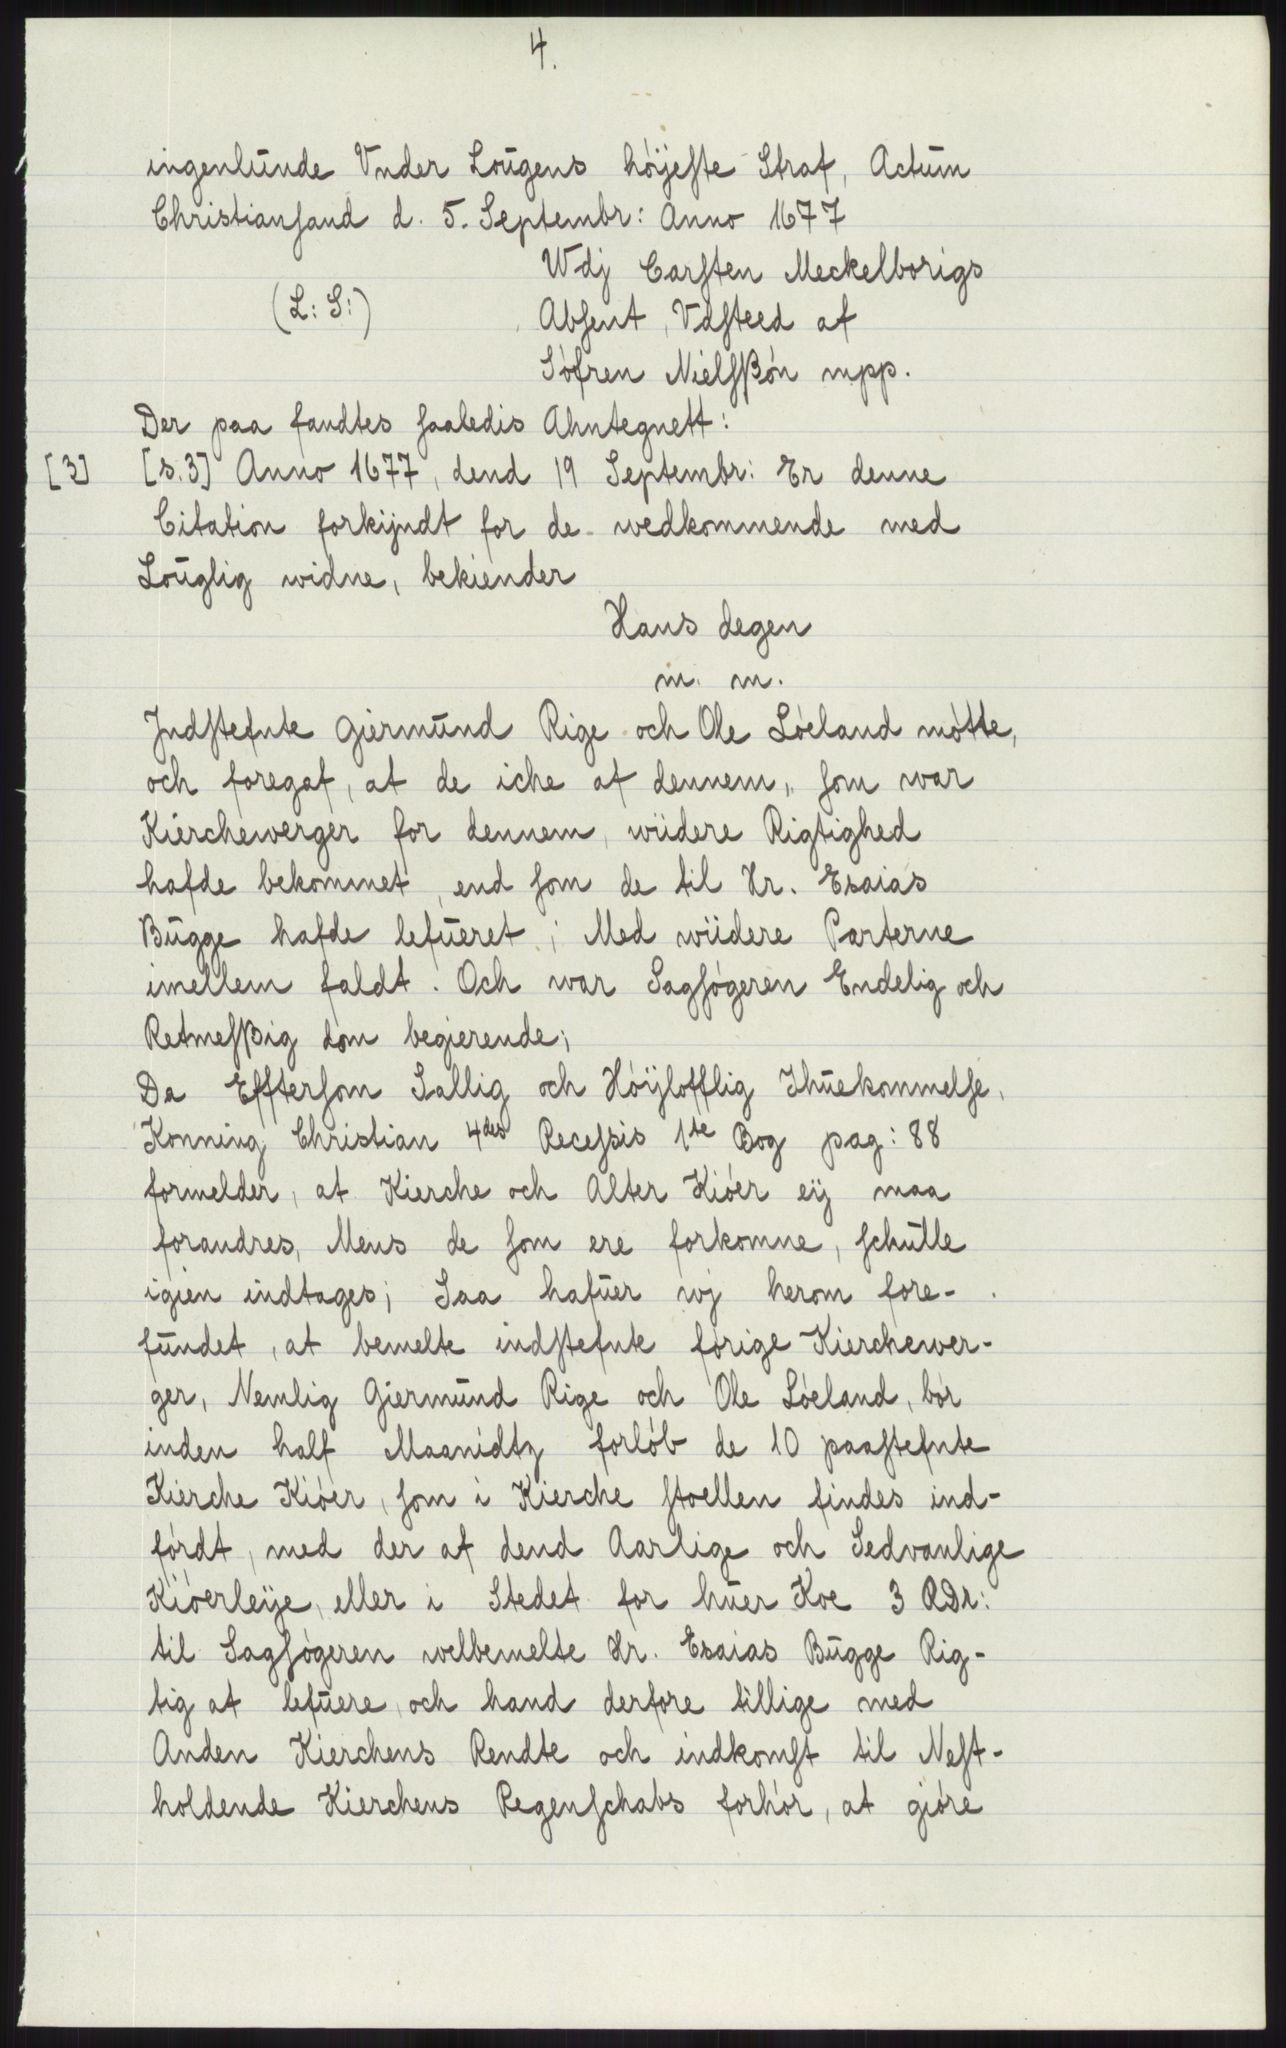 4.
ingenlunde Vnder Lougens höÿeste Straf, Actum
Christiansand d. 5. Septembr: Anno 1677
Wdj Carsten Meckelborigs
(L: S:)
Absent, Vdsteed af
Söfren Nielsßön mpp.
Der paa fandtes saaledis Ahntegnett:
[3] [s.3] Anno 1677, dend 19 Septembr: Er denne
Citation forkijndt for de wedkommende med
Louglig widne, bekiender
Hans degen
m. m.
Jndstefnte Giermund Rige och Ole Löeland mötte,
och foregaf, at de iche af dennem, som war
Kierchewerger for dennem, wiidere Rigtighed
hafde bekommet, end som de til Hr. Esaias
Bugge hafde lefueret; Med wiidere Parterne
imellem faldt. Och war Sagsögeren Endelig och
Retmesßig dom begierende;
Da Efftersom Sallig och Höÿlofflig Ihuekommelse,
Konning Christian 4des Recessis 1te Bog pag: 88
formelder, at Kierche och Alter Kiöer eÿ maa
forandres, Mens de som ere forkomne, schulle
igien indtages; Saa hafuer wj herom fore-
fundet, at bemelte indstefnte forige Kierchewer-
ger, Nemlig Giermund Rige och Ole Löeland, bör
inden half Maanidtz forlöb de 10 paastefnte
Kierche Kiöer, som i Kierche stoellen findes ind-
fördt, med der af dend Aarlige och Sedvanlige
Kiöerleÿe, eller i Stedet for huer Koe 3 RDr:
til Sagsögeren welbemelte Hr. Esaias Bugge Rig-
tig at lefuere, och hand derfore tillige med
Anden Kierchens Rendte och indkomst til Nest-
holdende Kierchens Regenschabs forhör, at giöre